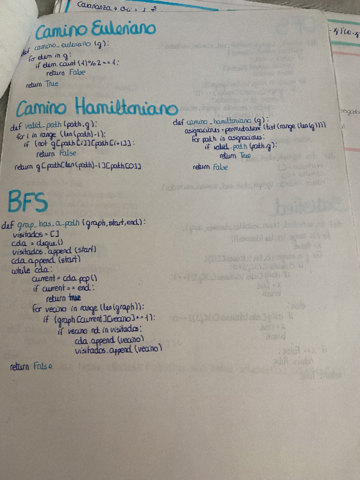 Camino Euleriano
def camino_euleriano (g):
for elem in g:
if elem.count(1)%2==1:
return False
return True
Camino Hamiltoniano
def valid_path (path,g):
for i in range (len(path)-1):
if (not g[path[i]][path[i+1]]:
return False
return g[path[len(path)-1]][path[0]]
def camino_hamiltoniano (g):
asignacious=permutation (list(range(len(g))))
for path is asignacious:
if valid_path (path,g):
return True
return False
BFS
def grap_has_a_path (graph,start,end):
visitados = []
cda = deque()
visitados.append (start)
cda.append (start)
while cda:
current = cda.pop()
if current == end:
return true
for vecino in range (len(graph)):
if (graph[current][vecino]==1):
if vecino not in visitados:
cda.append (vecino)
visitados.append (vecino)
return False